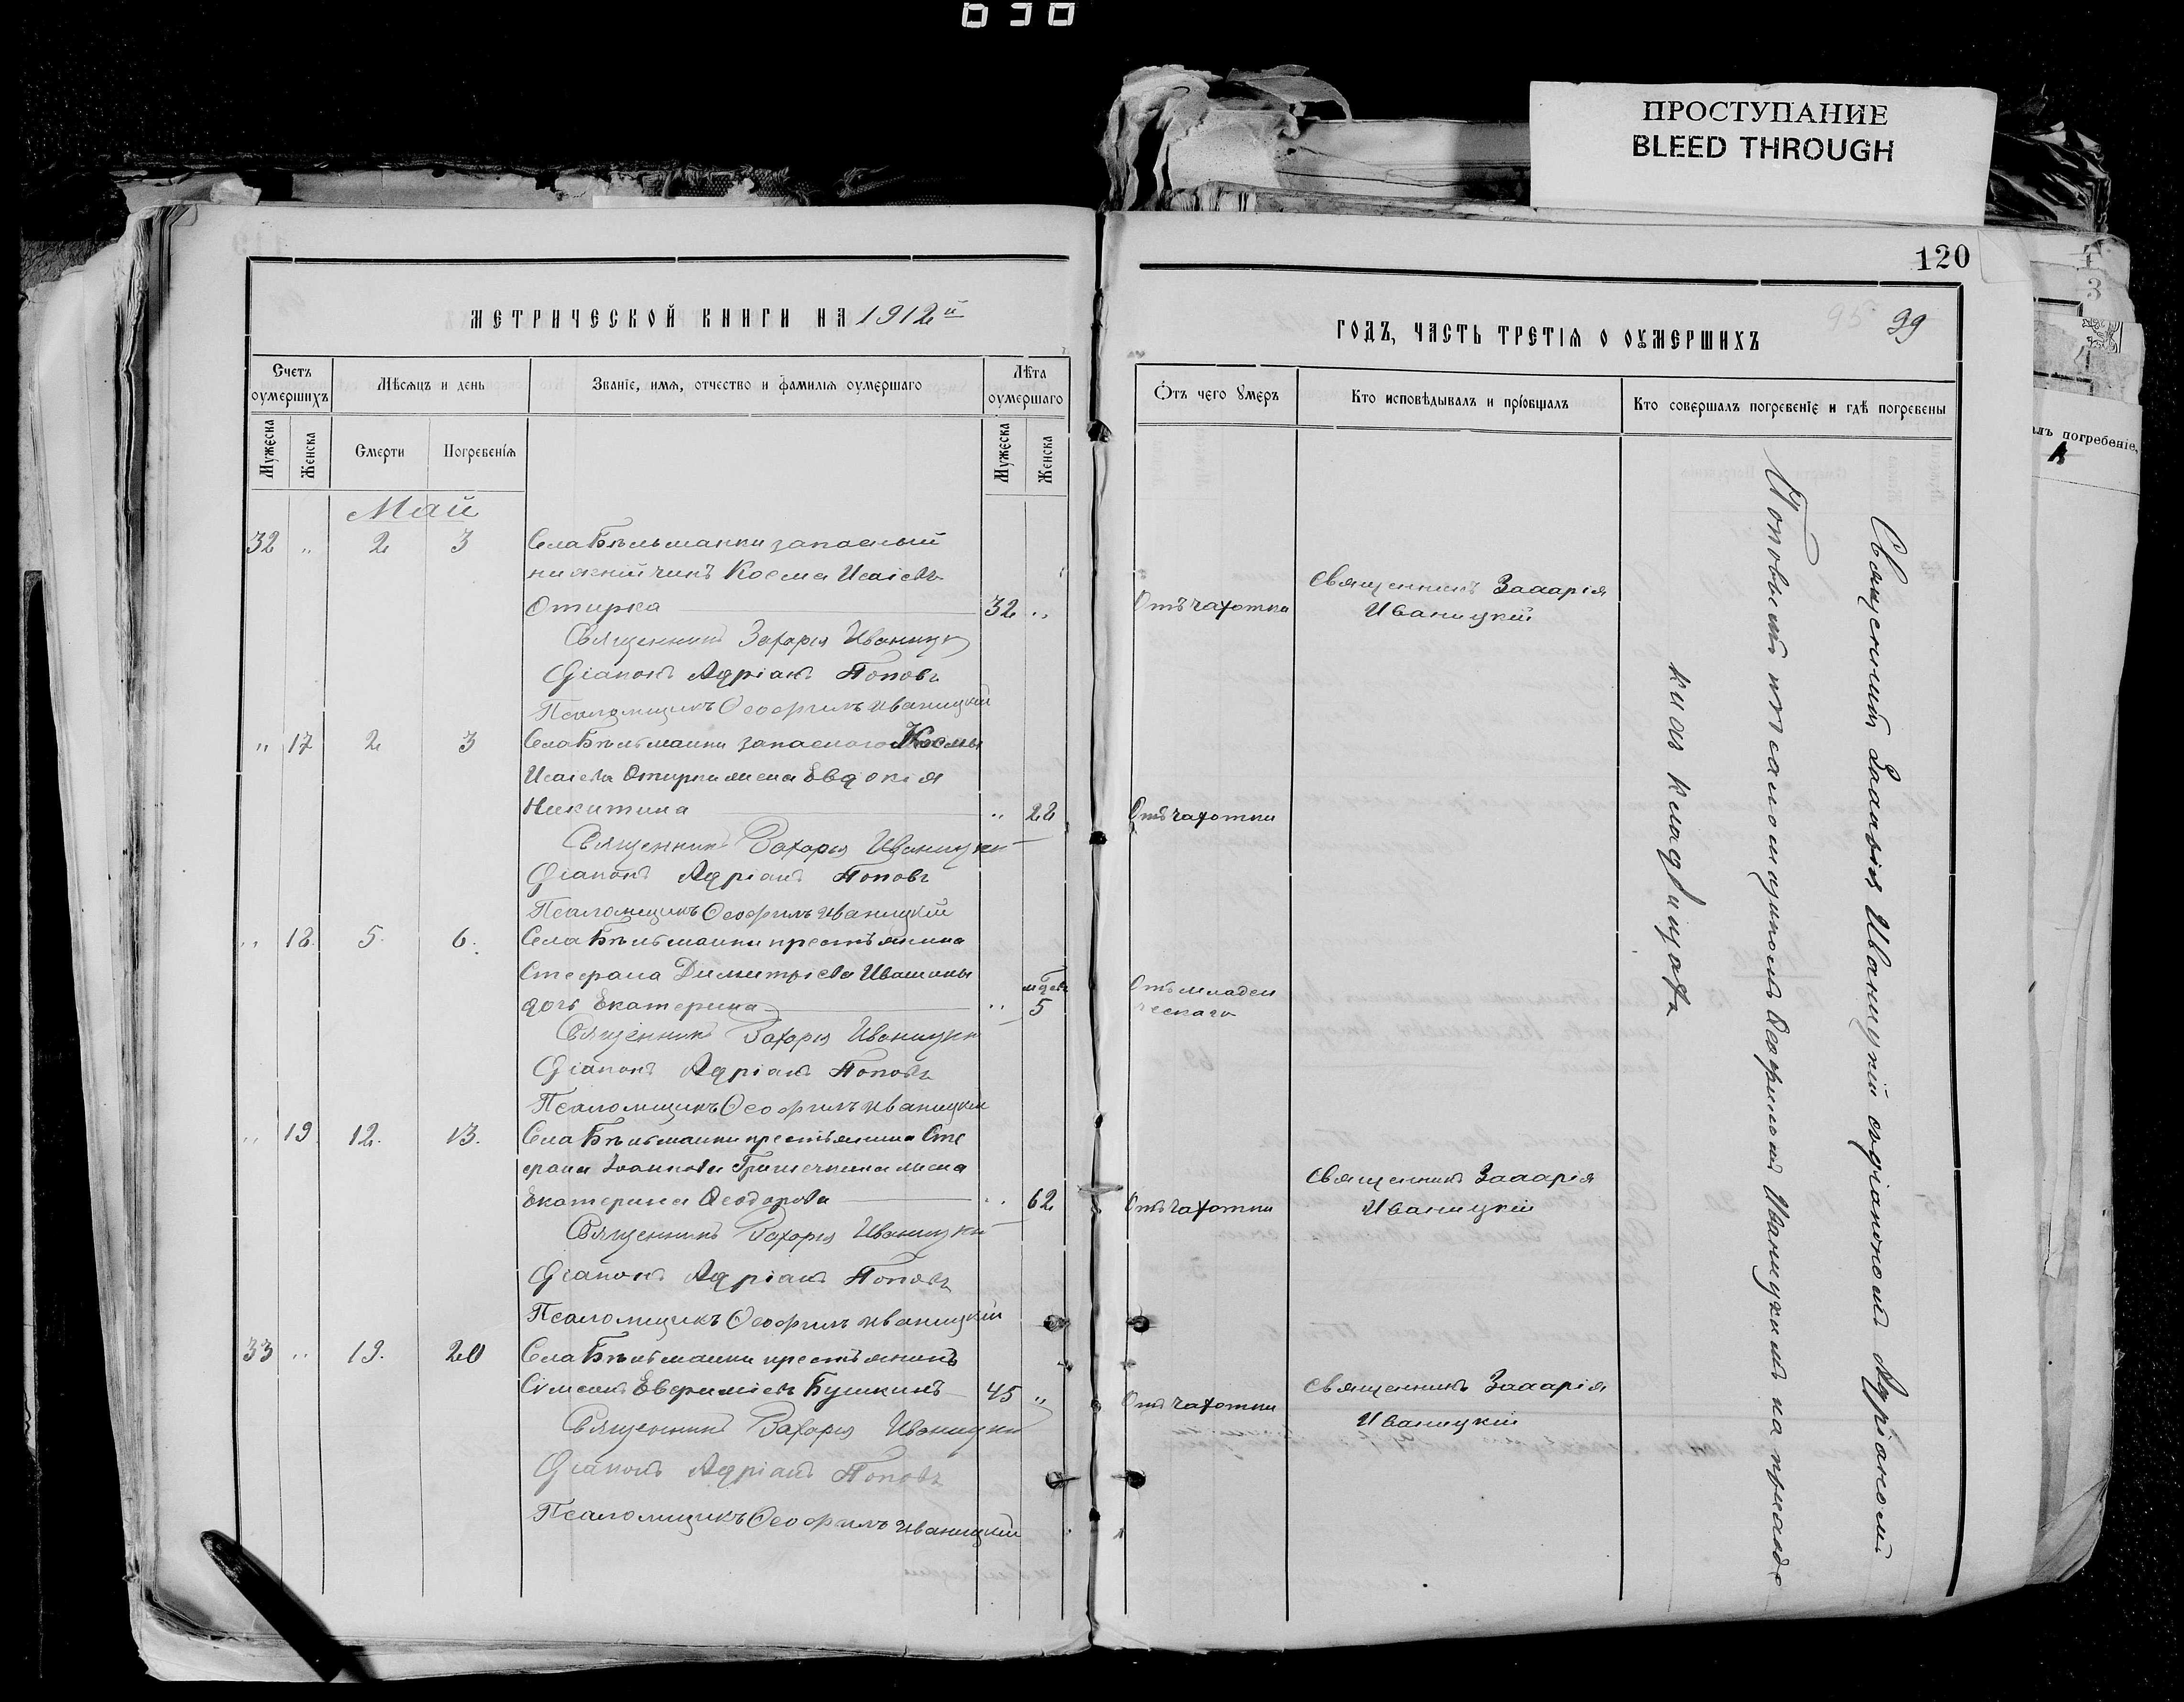 ПРОСТУПАНИЕ
BLEED THROUGH
120
МЕТРИЧЕСКОЙ КНИГИ НА 1912й
Счетъ оумершихъ
Мѣсяцъ и день
Званіе, имя, отчество и фамилія оумершаго
Лѣта оумершаго
Мужеска
Женска
Смерти
Погребенія
Мужеска
Женска
Май
32 „ 2 3 Села Бѣльманки запасный
нижній чинъ Косма Исаіевъ
Отирка 32 „
Священникъ Захарія Иваницкій
Діаконъ Адріанъ Поповъ
Псаломщикъ Ѳеофилъ Иваницкій
„ 17 2 3 Села Бѣльманки запаснаго Космы
Исаіева Отирки жена Евдокія
Никитина „ 28
Священникъ Захарія Иваницкій
Діаконъ Адріанъ Поповъ
Псаломщикъ Ѳеофилъ Иваницкій
„ 18. 5. 6. Села Бѣльманки крестьянина
Стефана Димитріева Ивашины
дочь Екатерина „ 5
Священникъ Захарія Иваницкій
Діаконъ Адріанъ Поповъ
Псаломщикъ Ѳеофилъ Иваницкій
„ 19. 12. 13. Села Бѣльманки крестьянина Сте
фана Іоаннова Гришечкина жена
Екатерина Ѳеодорова „ 62
Священникъ Захарія Иваницкій
Діаконъ Адріанъ Поповъ
Псаломщикъ Ѳеофилъ Иваницкій
33 „ 19. 20 Села Бѣльманки крестьянинъ
Сѵмеонъ Евфиміевъ Бушкинъ 45 „
Священникъ Захарія Иваницкій
Діаконъ Адріанъ Поповъ
Псаломщикъ Ѳеофилъ Иваницкій
ГОДЪ, ЧАСТЬ ТРЕТІЯ О ОУМЕРШИХЪ
95 99
Отъ чего умеръ
Кто исповѣдывалъ и пріобщалъ
Кто совершалъ погребеніе и гдѣ погребены
Отъ чахотки
Священникъ Захарія
Иваницкій
Отъ чахотки
Отъ младен
ческаго
Отъ чахотки
Священникъ Захарія
Иваницкій
Отъ чахотки
Священникъ Захарія
Иваницкій
Священникъ Захарія Иваницкій съ діакономъ Адріаномъ
Поповымъ и псаломщикомъ Ѳеофиломъ Иваницкимъ на приходс
кихъ кладбищахъ
погребеніе,